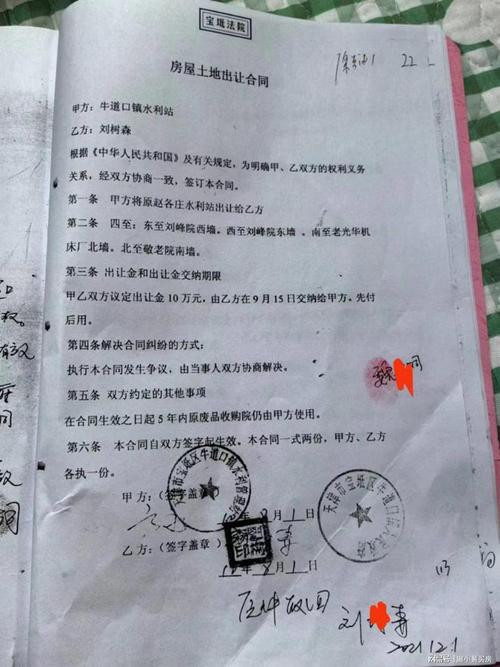 宝坻法院
22
房屋土地出让合同
甲方：牛道口镇水利站
乙方：刘树森
根据《中华人民共和国》及有关规定，为明确甲、乙双方的权利义务
关系，经双方协商一致，签订本合同。
第一条 甲方将原赵各庄水利站出让给乙方
第二条 四至：东至刘峰院西墙。西至刘峰院东墙 。南至老光华机
床厂北墙。北至敬老院南墙。
第三条 出让金和出让金交纳期限
甲乙双方议定出让金 10 万元，由乙方在 9 月 15 日交纳给甲方。先付
后用。
第四条解决合同纠纷的方式：
执行本合同发生争议，由当事人双方协商解决。
第五条 双方约定的其他事项
在合同生效之日起 5 年内原废品收购院仍由甲方使用。
第六条 本合同自双方签字起生效。本合同一式两份，甲方、乙方
各执一份。
甲方：（签字盖章）
月1日
乙方：（签字盖章）
月1日
刘 森
2021.12.1